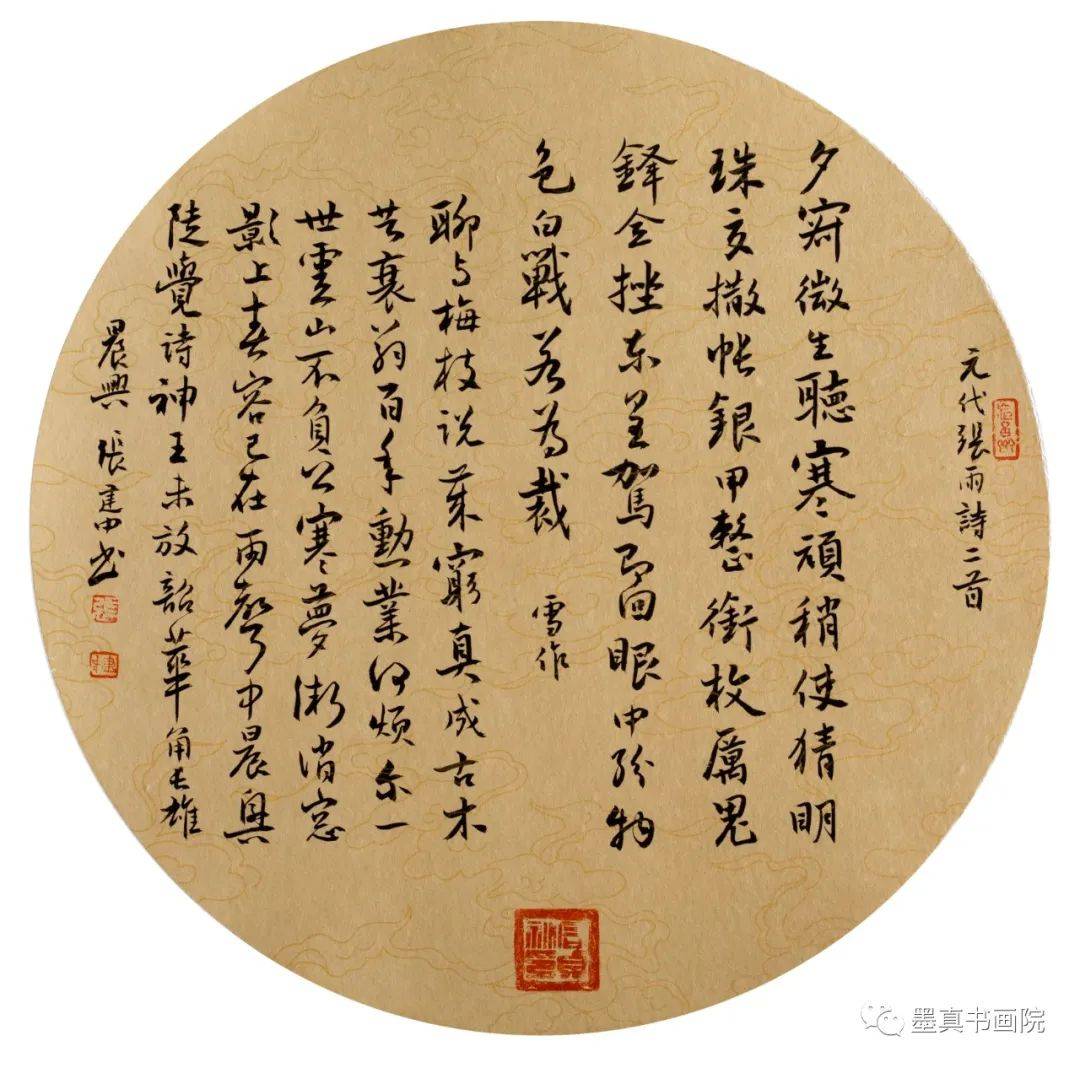 元代張雨詩二首
夕微生聽寒頑稍使猜明
珠交撒帳銀甲整銜枚厲鬼
鋒全挫东皇駕即回眼中紛物
色白戰若為裁 雪作
聊与梅枝说歲窮真成古木
共衰翁百年勳業何煩尔一
世雲山不負公寒夢漸消窓
影上春容已在雨聲中晨興
陡覺詩神王未放韶華角長雄
晨興 張建中书
墨真书画院